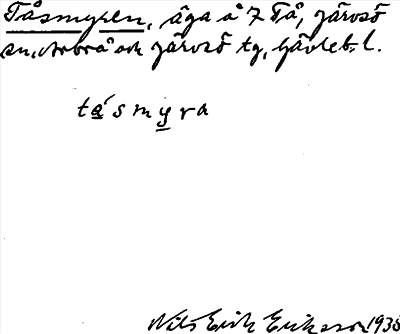 Tåsmyren, äga å 7 Tå, Järvsö
sn, Arbrå och Järvsö tg, Gävleb. l.
tá̱smy̱ra
Nils Erik Eriksson 1938